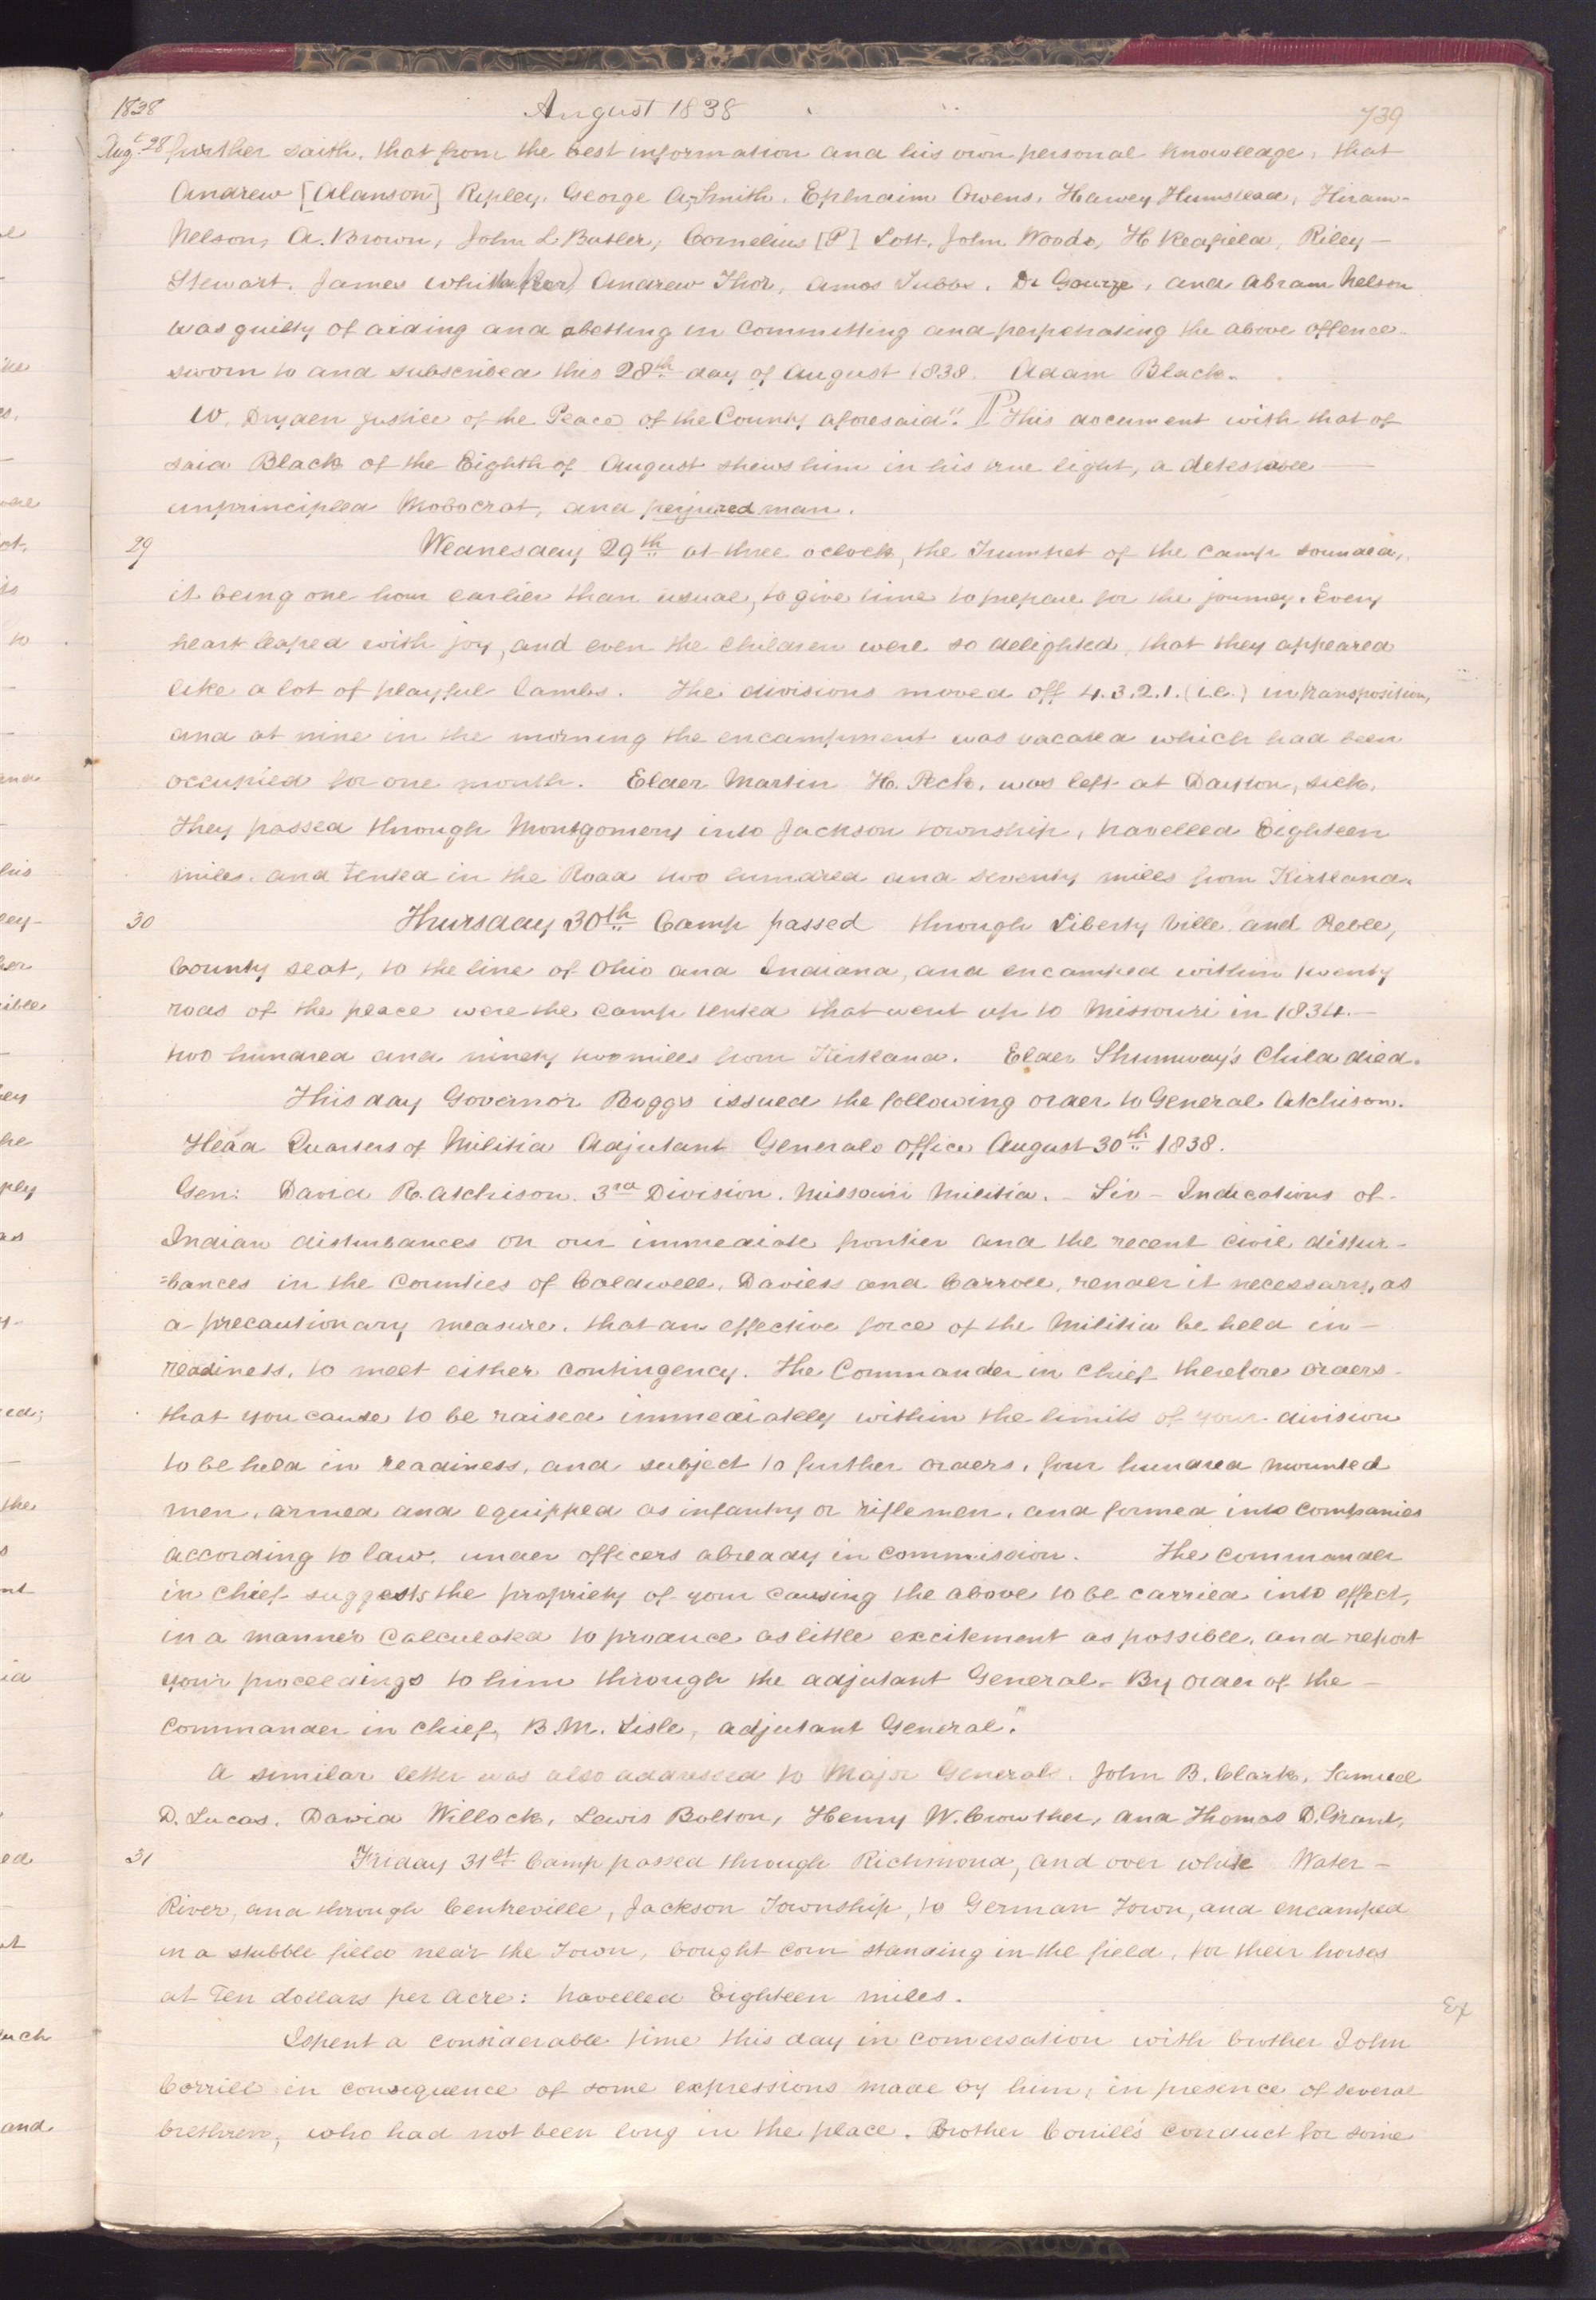 1838 August 1838 739
Augt. 28 further saith, that from the best information and his own personal knowledge, that
Andrew [Alanson] Ripley, George A. Smith, Ephraim Owens, Harvey Humstead, Hiram
Nelson, A. Brown, John L Butler, Cornelius [P] Lott, John Woods, H Redfield, Riley
Stewart, James Whitaker, Andrew Thor, Amos Tubbs, Dr Gourze, and Abram Nelson
was guilty of aiding and abetting in committing and perpetrating the above offence
sworn to and subscribed this 28th day of August 1838. Adam Black.
W, Dryden Justice of the Peace of the County aforesaid". ¶ This document with that of
said Black of the Eighth of August shews him in his true light, a detestable
unprincipled Mobocrat, and perjured man.
29 Wednesday 29th at three oclock, the Trumpet of the camp sounded,
it being one hour earlier than usual, to give time to prepare for the journey. Every
heart leaped with joy, and even the children were so delighted, that they appeared
like a lot of playful lambs. The divisions moved off 4.3.2.1. (i.e.) in transposition,
and at nine in the morning the encampment was vacated which had been
occupied for one month. Elder Martin H. Peck, was left at Dayton, sick,
They passed through Montgomery into Jackson township, travelled Eighteen
miles, and tented in the Road two hundred and seventy miles from Kirtland.
30 Thursday 30th Camp passed through Liberty Ville and Peble,
County seat, to the line of Ohio and Indiana, and encamped within twenty
rods of the place were the camp tented that went up to Missouri in 1834.—
two hundred and ninety two miles from Kirtland. Elder Shumway's Child died.
This day Governor Boggs issued the following order to General Atchison.
Head Quarters of Militia Adjutant Generals Office August 30th 1838.
Gen: David R. Atchison. 3rd Division. Missouri Militia. — Sir — Indications of
Indian disturbances on our immediate frontier and the recent civil distur-
=bances in the Counties of Caldwell, Daviess and Carroll, render it necessary, as
a precautionary measure, that an effective force of the Militia be held in—
readiness, to meet either contingency. The Commander in chief therefore orders
that you cause to be raised immediately within the limits of your division
to be held in readiness, and subject to further orders, four hundred mounted
men, armed and equipped as infantry or riflemen, and formed into companies
according to law, under officers already in commission. The commander
in chief suggests the propriety of your causing the above to be carried into effect,
in a manner calculated to produce as little excitement as possible, and report
your proceedings to him through the adjutant General. By order of the —
commander in chief, B.M. Lisle, adjutant General."
A similar letter was also addressed to Major Generals, John B. Clark, Samuel
D. Lucas, David Willock, Lewis Bolton, Henry W. Crowther, and Thomas D. Grant,
31 Friday 31st Camp passed through Richmond, and over white Water—
River, and through Centreville, Jackson Township, to German Town, and encamped
in a stubble field near the Town, bought corn standing in the field, for their horses
at Ten dollars per Acre: travelled Eighteen miles.
Ex
I spent a considerable time this day in conversation with brother John
Corrill in consequence of some expressions made by him, in presence of several
brethren, who had not been long in the place. Brother Corrill's conduct for some